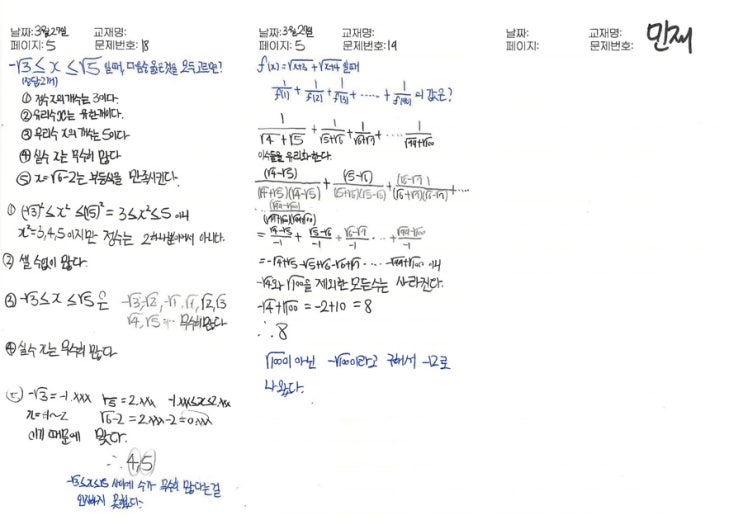 날짜: 3월27일 교재명:
페이지: 5 문제번호: 18
-√3 ≤ x ≤ √5 일때, 다음중 옳은것을 모두 고르면?
(정답 2개)
① 정수 x의 개수는 3이다.
② 유리수 x는 유한개이다.
③ 무리수 x의 개수는 5이다
④ 실수 x는 무수히 많다
⑤ x=√6-2는 부등식을 만족시킨다.
① (-√3)² ≤ x² ≤ (√5)² = 3 ≤ x² ≤ 5 이니
x²=3,4,5 이지만 정수는 2 하나뿐이여서 아니다.
② 셀 수없이 많다.
③ -√3 ≤ x ≤ √5 은 -√3, -√2, -√1, √1, √2, √3
√4, √5 … 무수히많다
④ 실수 x는 무수히 많다
⑤ -√3=-1.xxx √5=2.xxx -1.xxx≤x≤2.xxx
x=-1~2 √6-2=2.xxx-2=0.xxx
이기 때문에 맞다.
∴ 4,5
-√3≤x≤√5 사이에 수가 무수히 많다는걸
인지하지 못했다.
날짜: 3월27일 교재명:
페이지: 5 문제번호: 19
f(x)=√x+3 + √x+4 일때
1/f(1) + 1/f(2) + 1/f(3) + …… + 1/f(96) 의 값은?
1/√4+√5 + 1/√5+√6 + 1/√6+√7 + …. 1/√99+√100
이수들을 유리화 한다.
(√4-√5)/(√4+√5)(√4-√5) + (√5-√6)/(√5+√6)(√5-√6) + (√6-√7)/(√6+√7)(√6-√7) + …
… (√99-√100)/(√99+√100)(√99-√100)
= √4-√5/-1 + √5-√6/-1 + √6-√7/-1 … + √99-√100/-1
=-√4+√5-√5+√6-√6+√7 … -√99+√100 이니
-√4와 √100을 제외한 모든수는 사라진다.
-√4+√100 = -2+10 = 8
∴ 8
√100이 아닌 -√100이라고 구해서 -12로
나왔다.
날짜: 교재명:
페이지: 문제번호:
민재